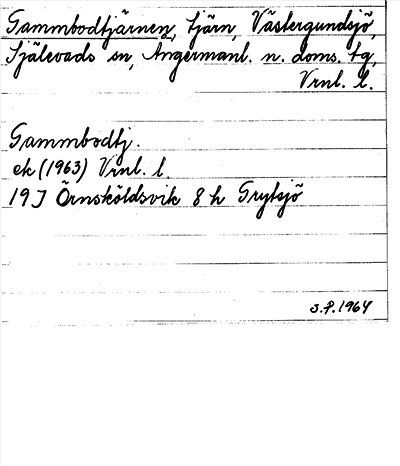 Gammbodtjärnen, tjärn, Västergundsjö,
Själevads sn, Ångermanl. n. doms. tg,
Vrnl. l.
Gammbodtj.
ek (1963) Vrnl. l.
19 J Örnsköldsvik 8 h Grytsjö
S.P. 1964